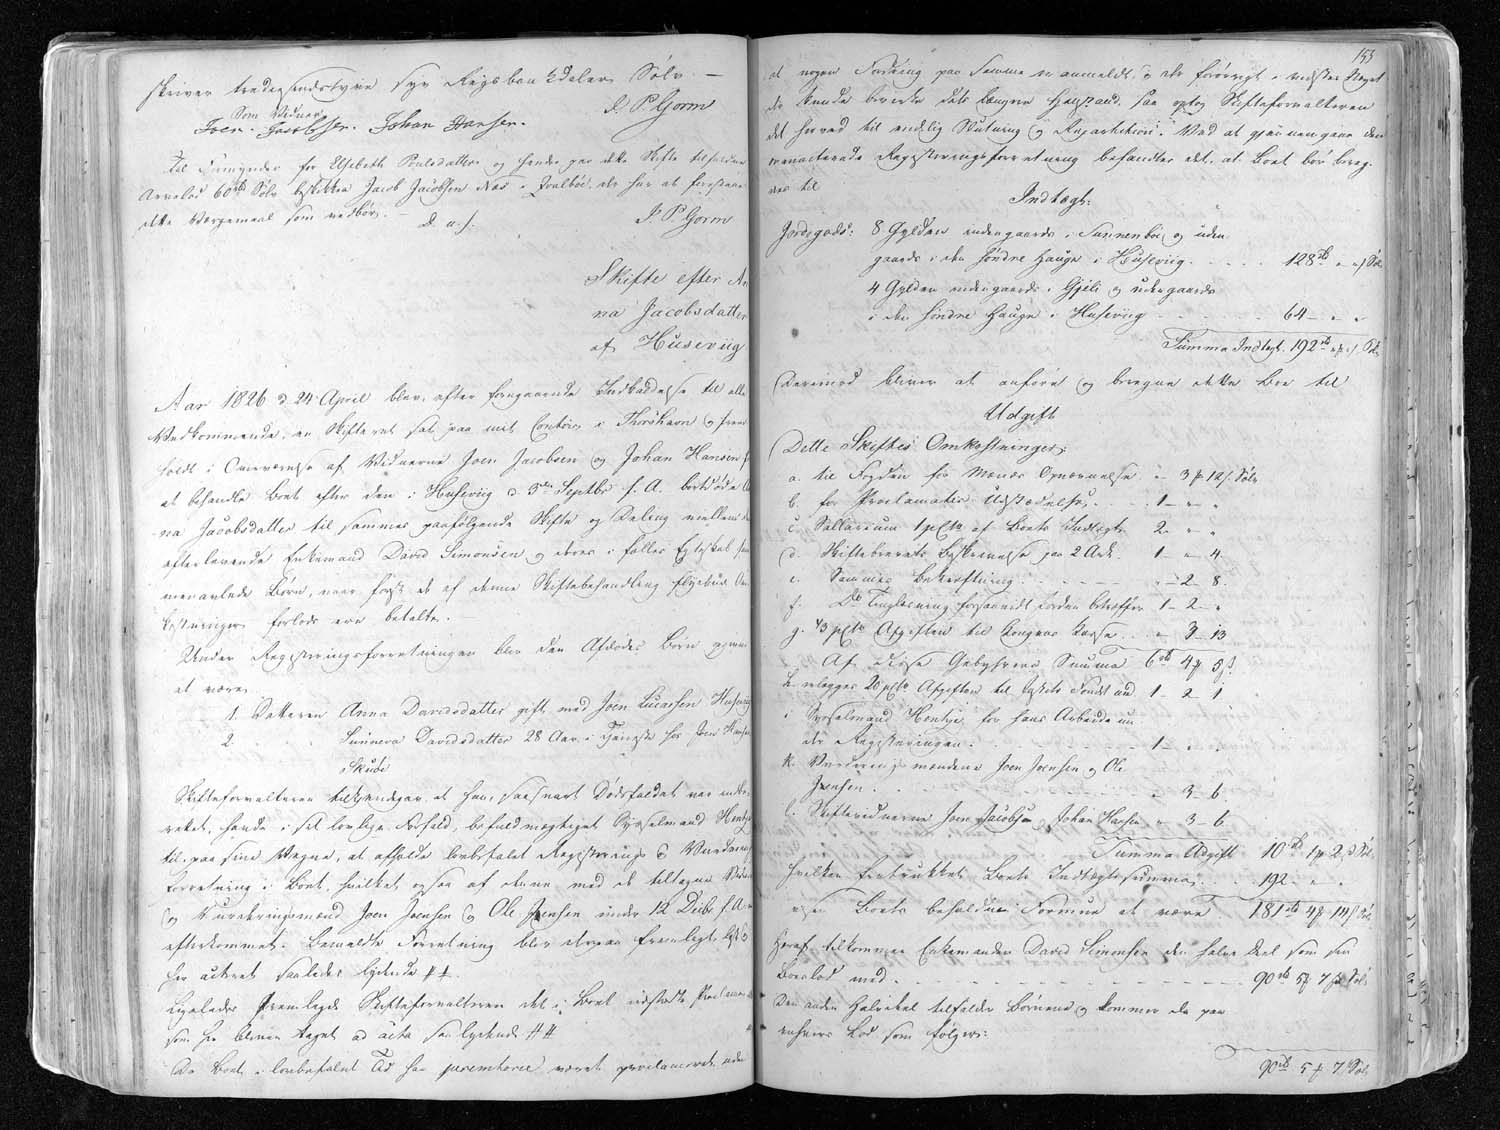 skriver tredesindstyve syv Rigsbankdaler Sølv. —
Som Vidner
J. P. Gorm
Joen Jacobsen. Johan Hansen.
Til Formynder for Elsebeth Poulsdatter og hendes paa dette Skifte tilfaldne
Arvelod 60 rbd Sølv beskikkes Jacob Jacobsen Næs i Hvalbøe, der har at forestaae
dette Værgemaal som vedbør. —
D. u. s.
J. P. Gorm
Skifte efter An
na Jacobsdatter
af Huseviig
Aar 1826 d 24 April blev, efter foregaaende Indkaldelse til alle
Vedkommende, en Skifteret sat paa mit Contoir i Thorshavn og frem
holdt i Overværelse af Vidnerne Joen Jacobsen og Johan Hansen f
at behandle Boet efter den i Huseviig d 3die Septbr f. A. bortdøde An
na Jacobsdatter til sammes paafølgende Skifte og Deling mellem den
efterlevende Enkemand David Simonsen og deres i fælles Egteskab sam
menavlede Børn, naar først de af denne Skiftebehandling flydende Om
kostninger forlods ere betalte. —
Under Registreringsforretningen blev den Afdødes Børn opgivne
at være
1. Datteren Anna Davidsdatter gift med Joen Lucassen Huseviig
2. Sunneva Davidsdatter 28 Aar i Tjeneste hos Joen Hansen
Skuoe
Skifteforvalteren tilkjendegav at han, saasnart Dødsfaldet var indbe
rettet, havde i sit lovlige Forfald, befuldmægtiget Sysselmand Hentze
til, paa sine Vegne, at afholde lovbefalet Registrerings og Vurderings
forretning i Boet, hvilket ogsaa af denne med de tiltagne Vidner
og Vurderingsmænd Joen Joensen og Ole Joensen under 12 Decbr f. A. er
efterkommet. Bemeldte Forretning blev derpaa fremlagt, læst og
her acteret saaledes lydende ⧧.
Ligeledes fremlagde Skifteforvalteren det i Boet udstædte Proclama
som her bliver taget ad acta saa lydende ⧧⧧
Da Boet i lovbefalet Tid har peremtorie været proclameret uden
153
at nogen Fordring paa Samme er anmeldt, og der forøvrigt ei vidstes Noget
der kunde bevirke dets længere Henstand, saa optog Skifteforvalteren
det herved til endelig Slutning og Repartition. Ved at gjennemgaae den
ovenacterede Registreringsforretning befandtes det, at Boet bør bereg-
nes til
Indtægt:
Jordegods: 8 Gylden indengaards i Sunnenbøe og uden
gaards i den søndre Hauge i Huseviig. - - - - 128 rbd " " s Sølv
4 Gylden indengaards i Gjeli og udengaards
i den søndre Hauge i Huseviig - - - - - 64 - " "
Summa Indtægt. 192 rbd " m " s Sølv
Derimod bliver at anføre og beregne dette Boe til
Udgift
Dette Skiftes Omkostninger:
a. til Fogden for Mænds Opnævnelse " - 3 m 12 s Sølv
b. for Proclamatis Udstædelse, - - - 1 - " - "
c. Sallarium 1 pCto af Boets Indtægt 2 - " "
d. Skiftebrevets Beskrivelse paa 2 Ark. 1 - " 4.
e. Sammes Bekræftning. - - - - " - 2 - 8.
f. Do Tinglæsning forsaavidt Jorden betræffer 1 - 2 - "
g. 1/3 pCto Afgiften til Kongens Casse . . . " - 3 - 13
Af disse Gebyhrers Summa 6 rbd 4 m 5 s.
h. erlægges 20 pCto Afgiften til Justits Fondet med 1 - 2 1.
i Sysselmand Hentze for hans Arbeide un
der Registreringen. - - - - - - - 1 - " "
k. Vurderingsmændene Joen Joensen og Ole
Joensen. - - - - - - " - 3 - 6
l. Skiftevidnerne Joen Jacobsen og Johan Hansen " - 3 - 6
Summa Udgift 10 rbd 1 m 2 s Sølv
hvilken fratrukket Boets Indtægtssumma, - - 192 - " "
viser Boets beholdne Formue at være 181 rbd 4 m 14 s Sølv
Heraf tilkommer Enkemanden David Simonsen den halve Deel som sin
Boeslod med - - - - - - - - - 90 rbd 5 m 7 s Sølv
Den anden Halvdeel tilfalder Børnene og kommer da paa
enhvers Lod som følger:
90 rbd 5 m 7 s Sølv